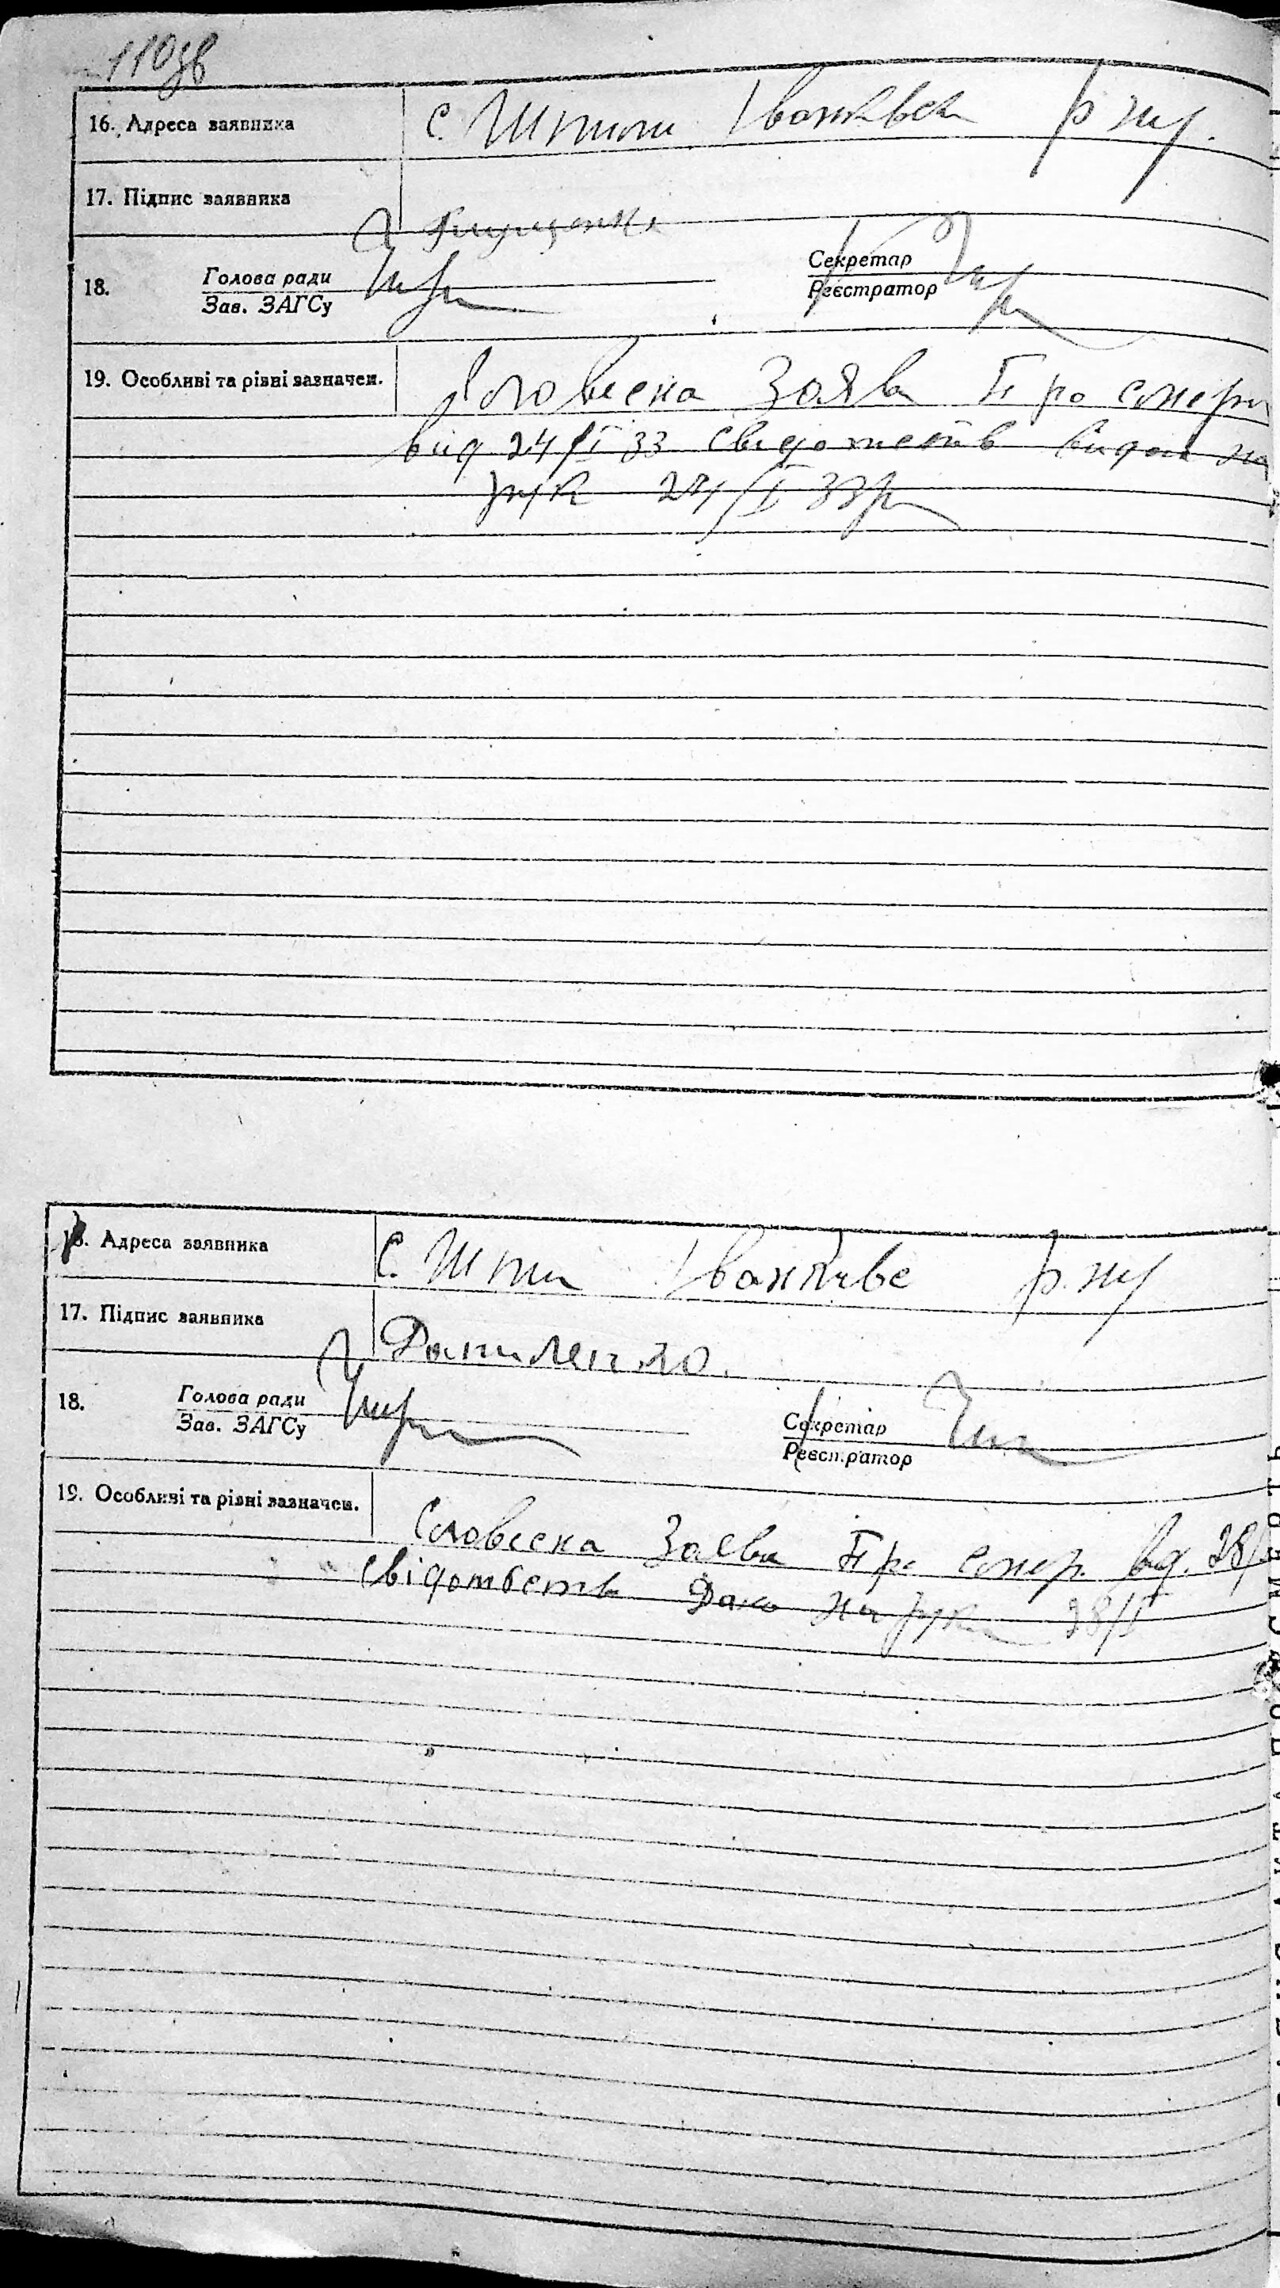 110зв
16. Адреса заявника с. Шпили Іванківськ р ну.
17. Підпис заявника
18. Голова ради Секретар
Зав. ЗАГСу Реєстратор
19. Особливі та різні зазначен. Словесна Заява Про смерт
від 24/I 33 Свидотств видан на
рук 24/I 33р
16. Адреса заявника С. Шпили р. ну
17. Підпис заявника Даниленко.
18. Голова ради Секретар
Зав. ЗАГСу Реєстратор
19. Особливі та різні зазначен. Словесна Заєва Про смер. від. 28/
свідотвств Дано На руки 28/I